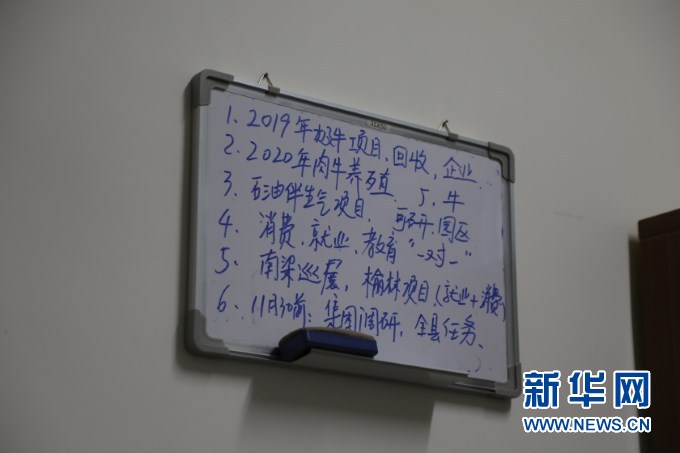 1. 2019年牦牛项目、回收,企业
2. 2020年肉牛养殖、5,牛
3. 石油伴生气项目、可研、园区
4. 消费、就业、教育“一对一”
5. 南梁巡展,榆林项目(就业+消费)
6. 11月30前:集团调研,全县任务、
新华网
WWW.NEWS.CN